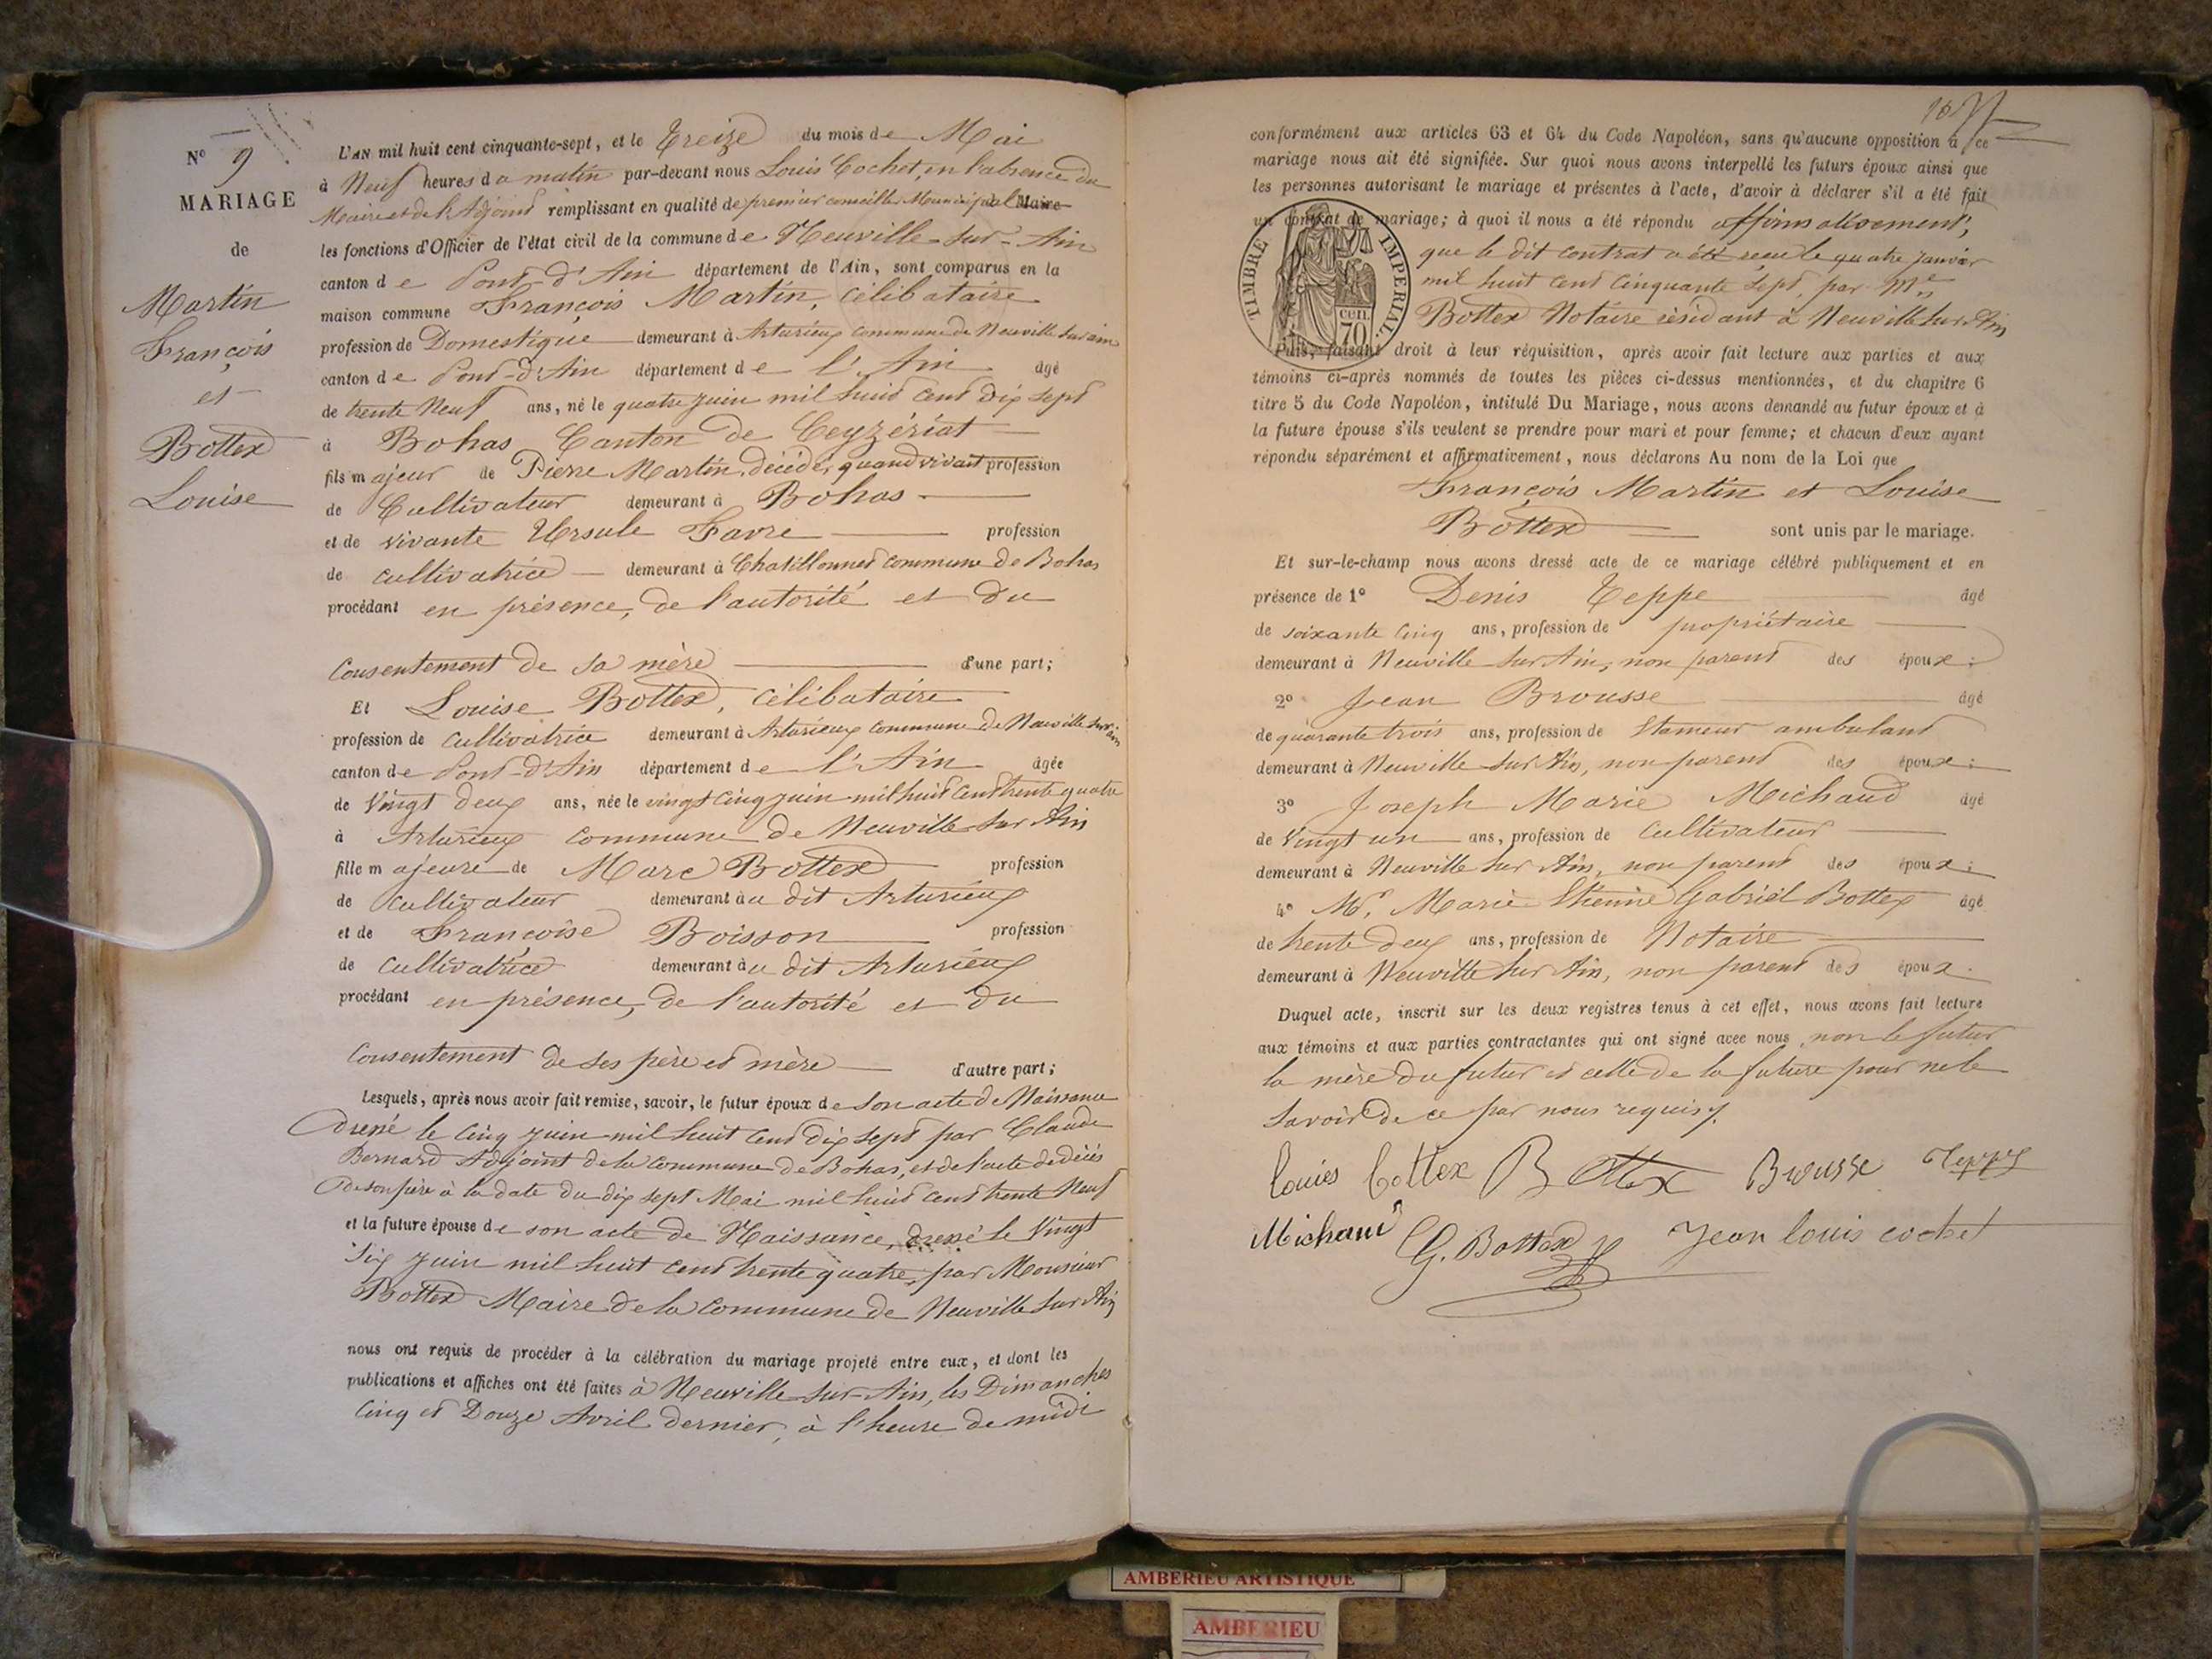 N° 9
MARIAGE
de
Martin
François
et
Bottex
Louise
L'AN mil huit cent cinquante-sept, et le Treize du mois de Mai
à Neuf heures du matin par-devant nous Louis Cochet, en l'absence du
Maire et de l'Adjoint remplissant en qualité de premier conseiller Municipal Maire
les fonctions d'Officier de l'état civil de la commune de Neuville-sur-Ain
canton de Pont-d'Ain département de l'Ain, sont comparus en la
maison commune François Martin, célibataire
profession de Domestique demeurant à Arturieux commune de Neuville sur ain
canton de Pont-d'Ain département de l'Ain âgé
de trente Neuf ans, né le quatre juin mil huit cent dix sept
à Bohas Canton de Ceyzériat
fils majeur de Pierre Martin, décédé, quand vivait profession
de Cultivateur demeurant à Bohas
et de vivante Ursule Favre profession
de cultivatrice demeurant à Chatillonnet commune de Bohas
procédant en présence, de l'autorité et du
Consentement de sa mère d'une part;
Et Louise Bottex, célibataire
profession de cultivatrice demeurant à Arturieux commune de Neuville sur ain
canton de Pont-d'Ain département de l'Ain âgée
de Vingt deux ans, née le vingt cinq juin mil huit cent trente quatre
à Arturieux commune de Neuville sur Ain
fille majeure de Marc Bottex profession
de cultivateur demeurant au dit Arturieux
et de Françoise Boisson profession
de cultivatrice demeurant au dit Arturieux
procédant en présence, de l'autorité et du
Consentement de ses père et mère d'autre part;
Lesquels, après nous avoir fait remise, savoir, le futur époux de son acte de Naissance
dressé le cinq juin mil huit cent dix sept par Claude
Bernard Adjoint de la commune de Bohas, et de l'acte de décès
de son père à la date du dix sept Mai mil huit cent trente Neuf
et la future épouse de son acte de Naissance, dressé le Vingt
Six juin mil huit cent trente quatre, par Monsieur
Bottex Maire de la commune de Neuville sur Ain
nous ont requis de procéder à la célébration du mariage projeté entre eux, et dont les
publications et affiches ont été faites à Neuville-sur-Ain, les Dimanches
Cinq et Douze Avril dernier, à l'heure de midi
conformément aux articles 63 et 64 du Code Napoléon, sans qu'aucune opposition à ce
mariage nous ait été signifiée. Sur quoi nous avons interpellé les futurs époux ainsi que
les personnes autorisant le mariage et présentes à l'acte, d'avoir à déclarer s'il a été fait
un contrat de mariage; à quoi il nous a été répondu affirmativement,
que le dit contrat a été reçu le quatre janvier
mil huit cent cinquante sept, par Me
Bottex Notaire résidant à Neuville sur Ain
TIMBRE IMPERIAL.
CEN.
70
Puis, faisant droit à leur réquisition, après avoir fait lecture aux parties et aux
témoins ci-après nommés de toutes les pièces ci-dessus mentionnées, et du chapitre 6
titre 5 du Code Napoléon, intitulé Du Mariage, nous avons demandé au futur époux et à
la future épouse s'ils veulent se prendre pour mari et pour femme; et chacun d'eux ayant
répondu séparément et affirmativement, nous déclarons Au nom de la Loi que
François Martin et Louise
Bottex sont unis par le mariage.
Et sur-le-champ nous avons dressé acte de ce mariage célébré publiquement et en
présence de 1° Denis Teppe âgé
de soixante cinq ans, profession de propriétaire
demeurant à Neuville sur Ain, non parent des époux;
2° Jean Brousse âgé
de quarante trois ans, profession de Etameur ambulant
demeurant à Neuville sur Ain, non parent des époux;
3° Joseph Marie Michaud âgé
de Vingt un ans, profession de Cultivateur
demeurant à Neuville sur Ain, non parent des époux;
4° Mr. Marie Etienne Gabriel Bottex âgé
de trente deux ans, profession de Notaire
demeurant à Neuville sur Ain, non parent des époux.
Duquel acte, inscrit sur les deux registres tenus à cet effet, nous avons fait lecture
aux témoins et aux parties contractantes qui ont signé avec nous non le futur
la mère du futur et celle de la future pour ne le
savoir de ce par nous requis.
Louies Bottex Bottex Brousse Teppe
Michaud G. Bottex Jean louis cochet
AMBERIEU ARTISTIQUE
AMBERIEU